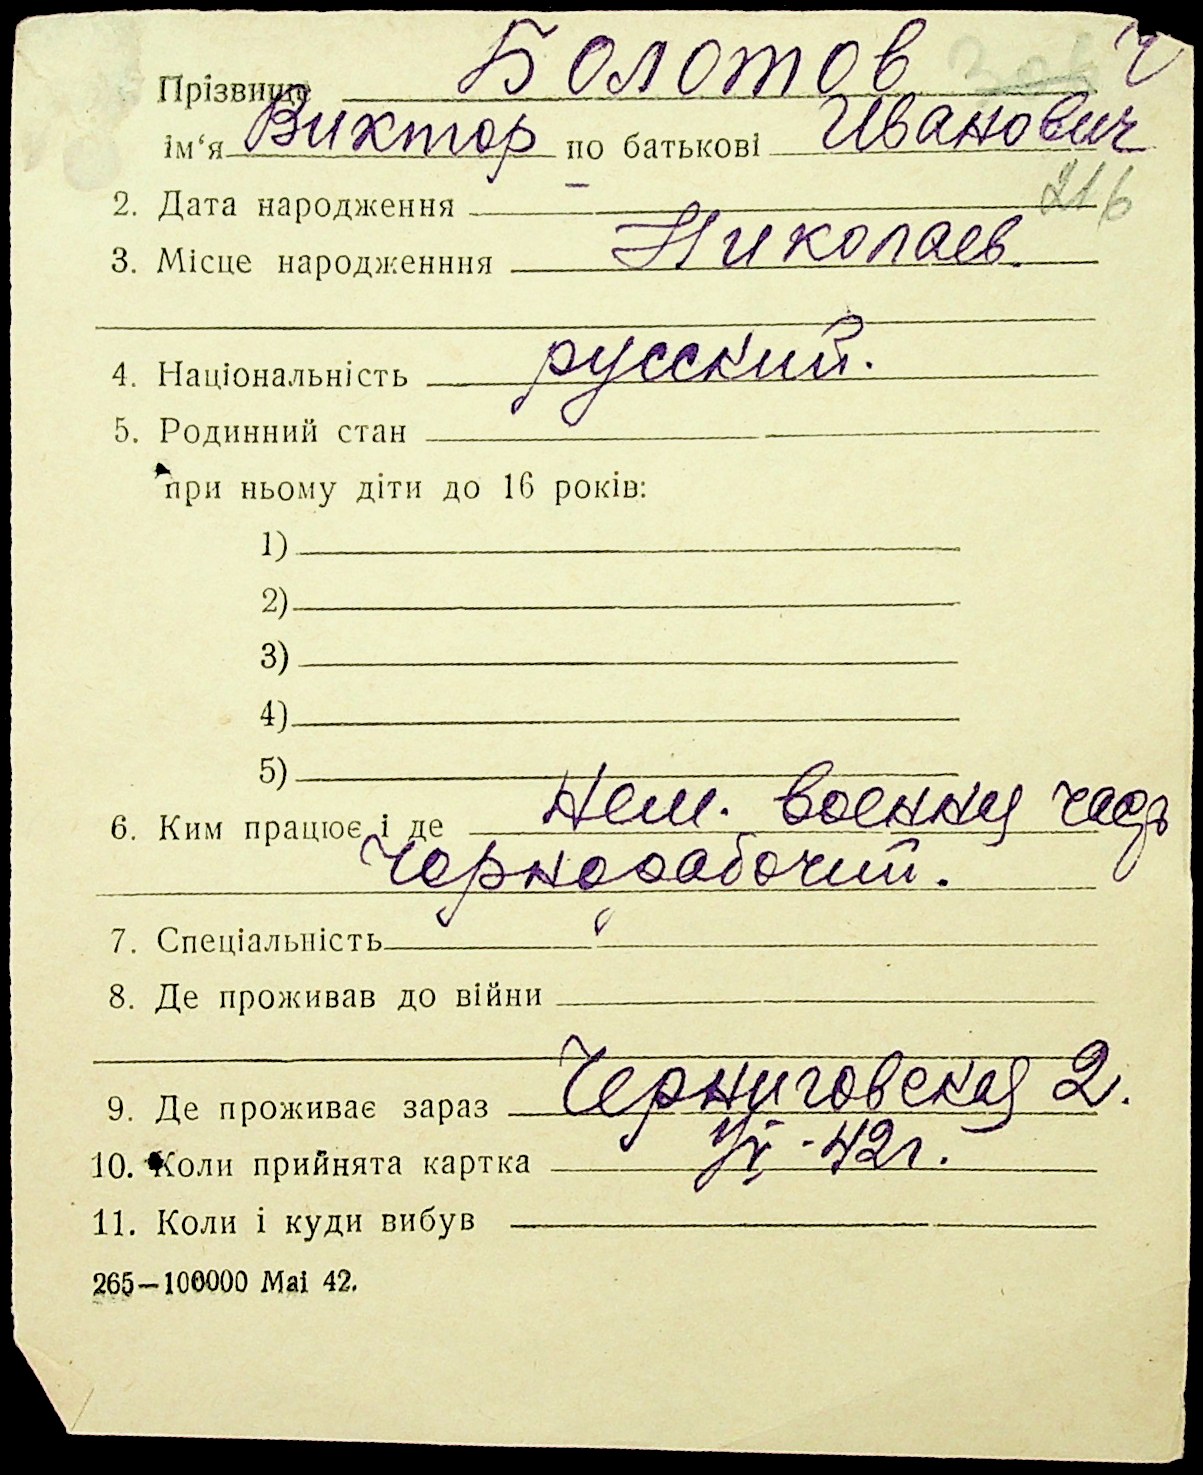 Прізвище Болотов
ім'я Виктор по батькові Иванович
216
2. Дата народження
3. Місце народженння Николаев.
4. Національність русский.
5. Родинний стан
при ньому діти до 16 років:
1)
2)
3)
4)
5)
6. Ким працює і де нем. воення часть
Чорнорабочий.
7. Спеціальність
8. Де проживав до війни
9. Де проживає зараз Черниговская 2.
10. Коли прийнята картка -42 г.
11. Коли і куди вибув
265—100000 Mai 42.